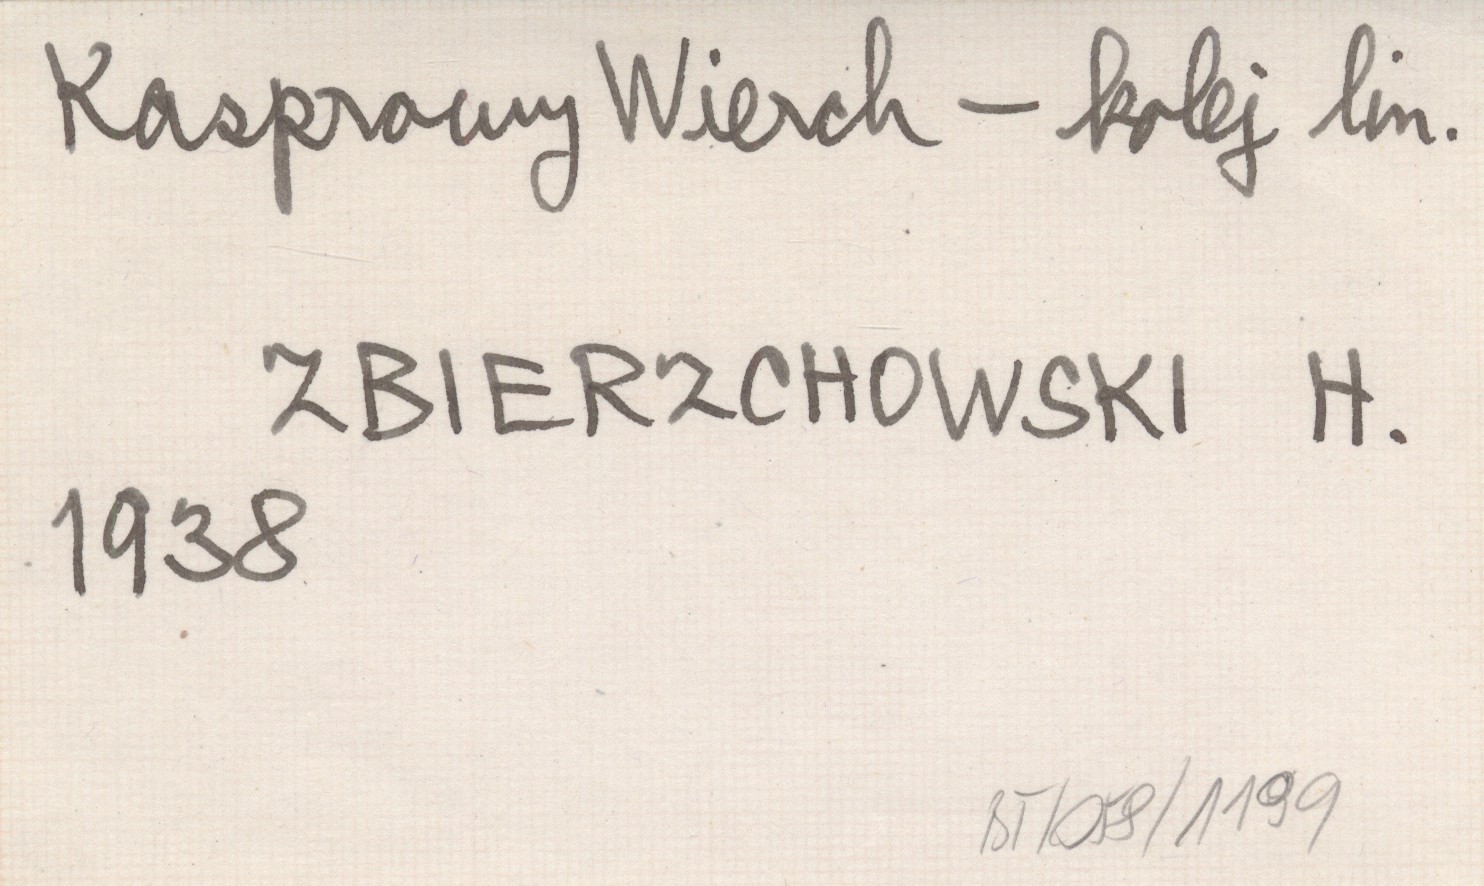 Kasprowy Wierch – kolej lin.
ZBIERZCHOWSKI H.
1938